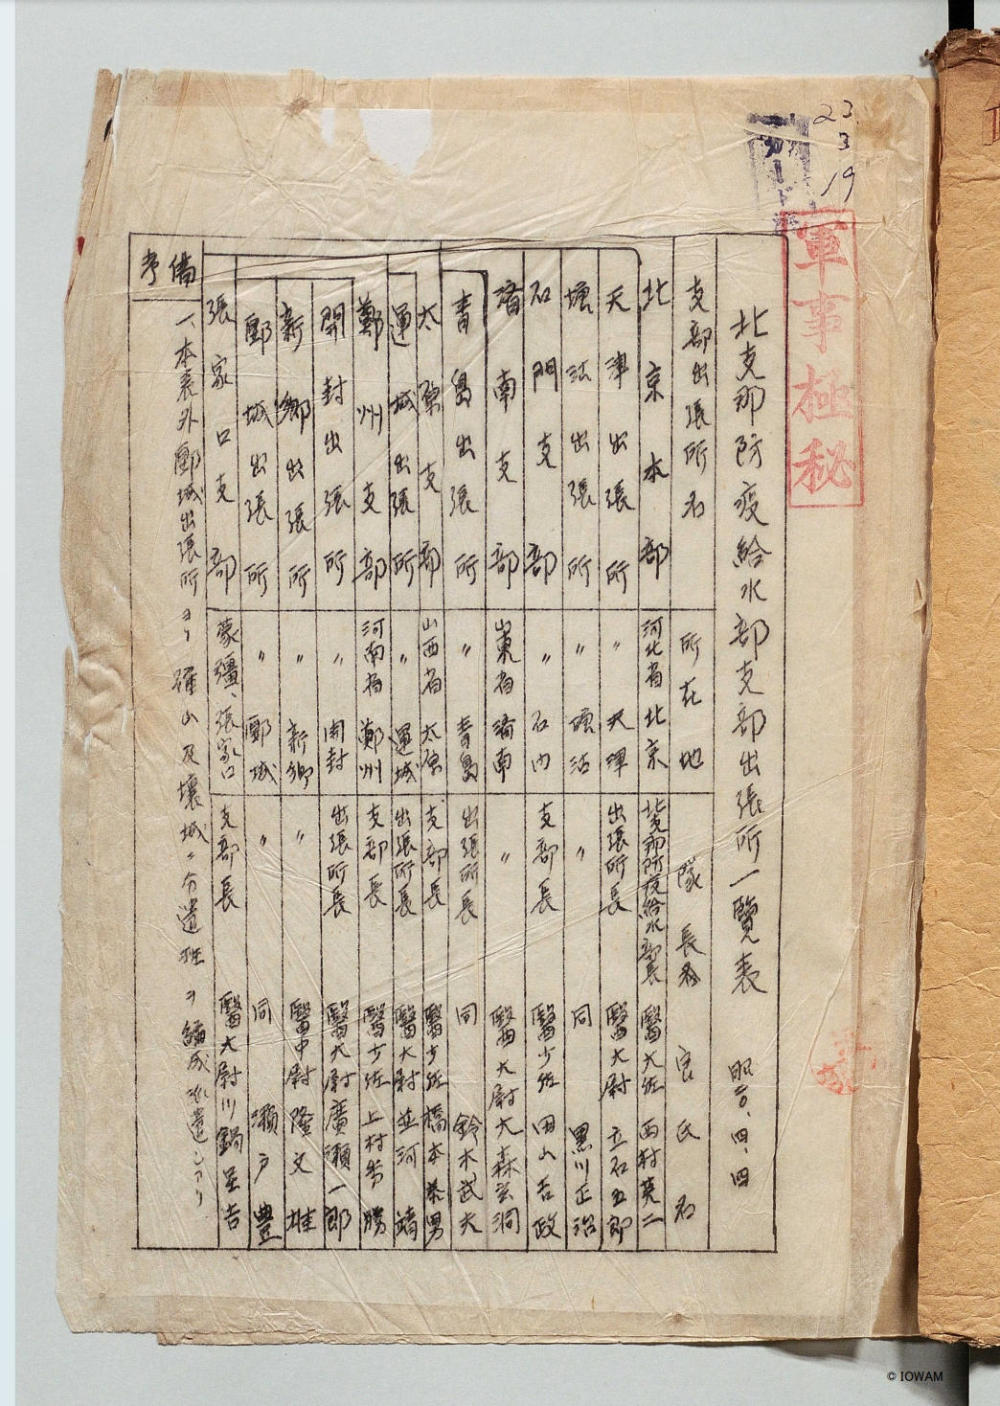 23
3
19
軍事極秘
北支那防疫給水部支部出張所一覽表 昭二〇、四、四
支部出張所名 所在地 隊長名 官氏名
北京本部 河北省北京 北支那防疫給水部長 醫大佐 西村英二
天津出張所 〃 天津 出張所長 醫大尉 立石五郎
塘沽出張所 〃 塘沽 〃 同 黒川正治
石門支部 〃 石门 支部長 醫少佐 田山吉政
濟南支部 山東省濟南 〃 醫大尉 大森玄洞
青島出張所 〃 青島 出張所長 同 鈴木武夫
太原支部 山西省太原 支部長 醫少佐 橋本 男
運城出張所 〃 運城 出張所長 醫大尉 並河靖
鄭州支部 河南省鄭州 支部長 醫少佐 上村秀勝
開封出張所 〃 開封 出張所長 醫大尉 廣瀬一郎
新鄉出張所 〃 新鄉 〃 醫中尉 隆文雄
郾城出張所 〃 郾城 〃 同 瀬戸豊
張家口支部 蒙疆、張家口 支部長 醫大尉 川鍋里吉
備考
一、本表外郾城出張所ヨリ確山及襄城ニ分遣班ヲ編成派遣シアリ
© IOWAM